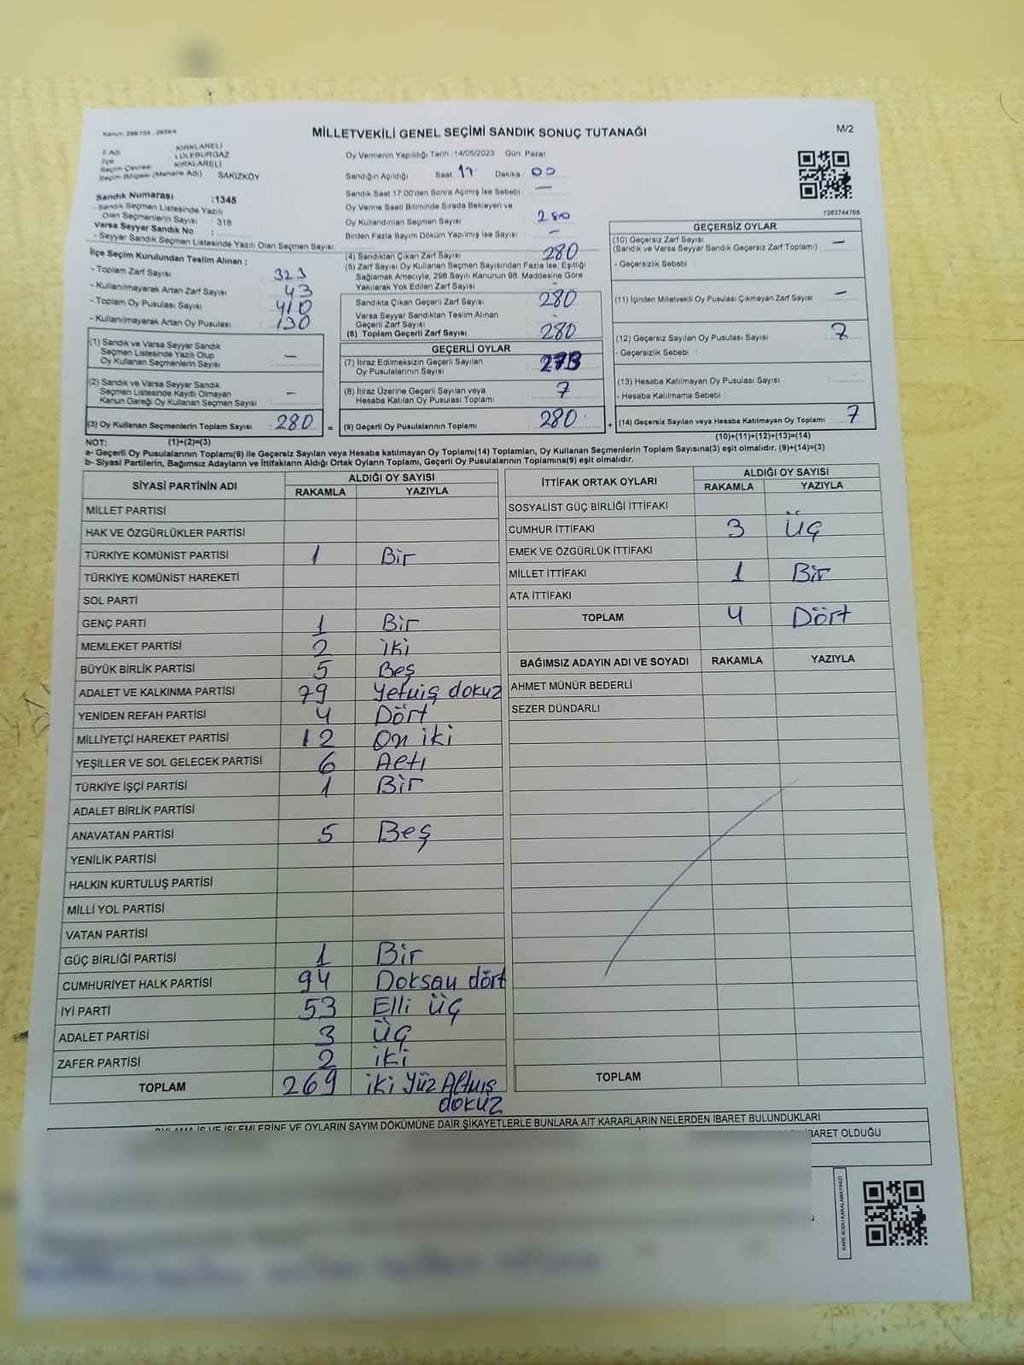 MİLLETVEKİLİ GENEL SEÇİMİ SANDIK SONUÇ TUTANAĞI
M/2
İl Adı KIRKLARELİ
İlçe LÜLEBURGAZ
Seçim Çevresi KIRKLARELİ
Seçim Bölgesi (Mahalle Adı) SAKIZKÖY
Sandık Numarası :1345
- Sandık Seçmen Listesinde Yazılı
Olan Seçmenlerin Sayısı : 318
Varsa Seyyar Sandık No :
- Seyyar Sandık Seçmen Listesinde Yazılı Olan Seçmen Sayısı:
Oy Vermenin Yapıldığı Tarih :14/05/2023 Gün Pazar
Sandığın Açıldığı Saat 17 Dakika 00
Sandık Saat 17.00'den Sonra Açılmış İse Sebebi —
Oy Verme Saati Bitiminde Sırada Bekleyen ve
Oy Kullandırılan Seçmen Sayısı 280
Birden Fazla Sayım Döküm Yapılmış İse Sayısı –
7083744788
İlçe Seçim Kurulundan Teslim Alınan :
- Toplam Zarf Sayısı 323
- Kullanılmayarak Artan Zarf Sayısı 43
- Toplam Oy Pusulası Sayısı 410
- Kullanılmayarak Artan Oy Pusulası 130
(1) Sandık ve Varsa Seyyar Sandık
Seçmen Listesinde Yazılı Olup
Oy Kullanan Seçmenlerin Sayısı —
(2) Sandık ve Varsa Seyyar Sandık
Seçmen Listesinde Kayıtlı Olmayan
Kanun Gereği Oy Kullanan Seçmen Sayısı —
(3) Oy Kullanan Seçmenlerin Toplam Sayısı 280 =
(4) Sandıktan Çıkan Zarf Sayısı 280
(5) Zarf Sayısı Oy Kullanan Seçmen Sayısından Fazla İse, Eşitliği
Sağlamak Amacıyla, 298 Sayılı Kanunun 98. Maddesine Göre
Yakılarak Yok Edilen Zarf Sayısı
Sandıkta Çıkan Geçerli Zarf Sayısı 280
Varsa Seyyar Sandıktan Teslim Alınan
Geçerli Zarf Sayısı
(6) Toplam Geçerli Zarf Sayısı 280
GEÇERLİ OYLAR
(7) İtiraz Edilmeksizin Geçerli Sayılan
Oy Pusulalarının Sayısı 273
(8) İtiraz Üzerine Geçerli Sayılan veya
Hesaba Katılan Oy Pusulası Toplamı 7
(9) Geçerli Oy Pusulalarının Toplamı 280 +
GEÇERSİZ OYLAR
(10) Geçersiz Zarf Sayısı
(Sandık ve Varsa Seyyar Sandık Geçersiz Zarf Toplamı) —
- Geçersizlik Sebebi
(11) İçinden Milletvekili Oy Pusulası Çıkmayan Zarf Sayısı –
(12) Geçersiz Sayılan Oy Pusulası Sayısı 7
- Geçersizlik Sebebi :
(13) Hesaba Katılmayan Oy Pusulası Sayısı
- Hesaba Katılmama Sebebi
(14) Geçersiz Sayılan veya Hesaba Katılmayan Oy Toplamı 7
NOT: (1)+(2)=(3) (10)+(11)+(12)+(13)=(14)
a- Geçerli Oy Pusulalarının Toplamı(9) ile Geçersiz Sayılan veya Hesaba katılmayan Oy Toplamı(14) Toplamları, Oy Kullanan Seçmenlerin Toplam Sayısına(3) eşit olmalıdır. (9)+(14)=(3)
b- Siyasi Partilerin, Bağımsız Adayların ve İttifakların Aldığı Ortak Oyların Toplamı, Geçerli Oy Pusulalarının Toplamına(9) eşit olmalıdır.
SİYASİ PARTİNİN ADI ALDIĞI OY SAYISI
RAKAMLA YAZIYLA
MİLLET PARTİSİ
HAK VE ÖZGÜRLÜKLER PARTİSİ
TÜRKİYE KOMÜNİST PARTİSİ 1 Bir
TÜRKİYE KOMÜNİST HAREKETİ
SOL PARTİ
GENÇ PARTİ 1 Bir
MEMLEKET PARTİSİ 2 iki
BÜYÜK BİRLİK PARTİSİ 5 Beş
ADALET VE KALKINMA PARTİSİ 79 Yetmiş dokuz
YENİDEN REFAH PARTİSİ 4 Dört
MİLLİYETÇİ HAREKET PARTİSİ 12 On iki
YEŞİLLER VE SOL GELECEK PARTİSİ 6 Altı
TÜRKİYE İŞÇİ PARTİSİ 1 Bir
ADALET BİRLİK PARTİSİ
ANAVATAN PARTİSİ 5 Beş
YENİLİK PARTİSİ
HALKIN KURTULUŞ PARTİSİ
MİLLİ YOL PARTİSİ
VATAN PARTİSİ
GÜÇ BİRLİĞİ PARTİSİ 1 Bir
CUMHURİYET HALK PARTİSİ 94 Doksan dört
İYİ PARTİ 53 Elli üç
ADALET PARTİSİ 3 üç
ZAFER PARTİSİ 2 iki
TOPLAM 269 iki Yüz Altmış
dokuz
İTTİFAK ORTAK OYLARI ALDIĞI OY SAYISI
RAKAMLA YAZIYLA
SOSYALIST GÜÇ BİRLİĞİ İTTİFAKI
CUMHUR İTTİFAKI 3 üç
EMEK VE ÖZGÜRLÜK İTTİFAKI
MİLLET İTTİFAKI 1 Bir
ATA İTTİFAKI
TOPLAM 4 Dört
BAĞIMSIZ ADAYIN ADI VE SOYADI RAKAMLA YAZIYLA
AHMET MÜNÜR BEDERLİ
SEZER DÜNDARLI
TOPLAM
İŞLEMLERİNE VE OYLARIN SAYIM DÖKÜMÜNE DAİR ŞİKAYETLERLE BUNLARA AİT KARARLARIN NELERDEN İBARET BULUNDUKLARI
İBARET OLDUĞU